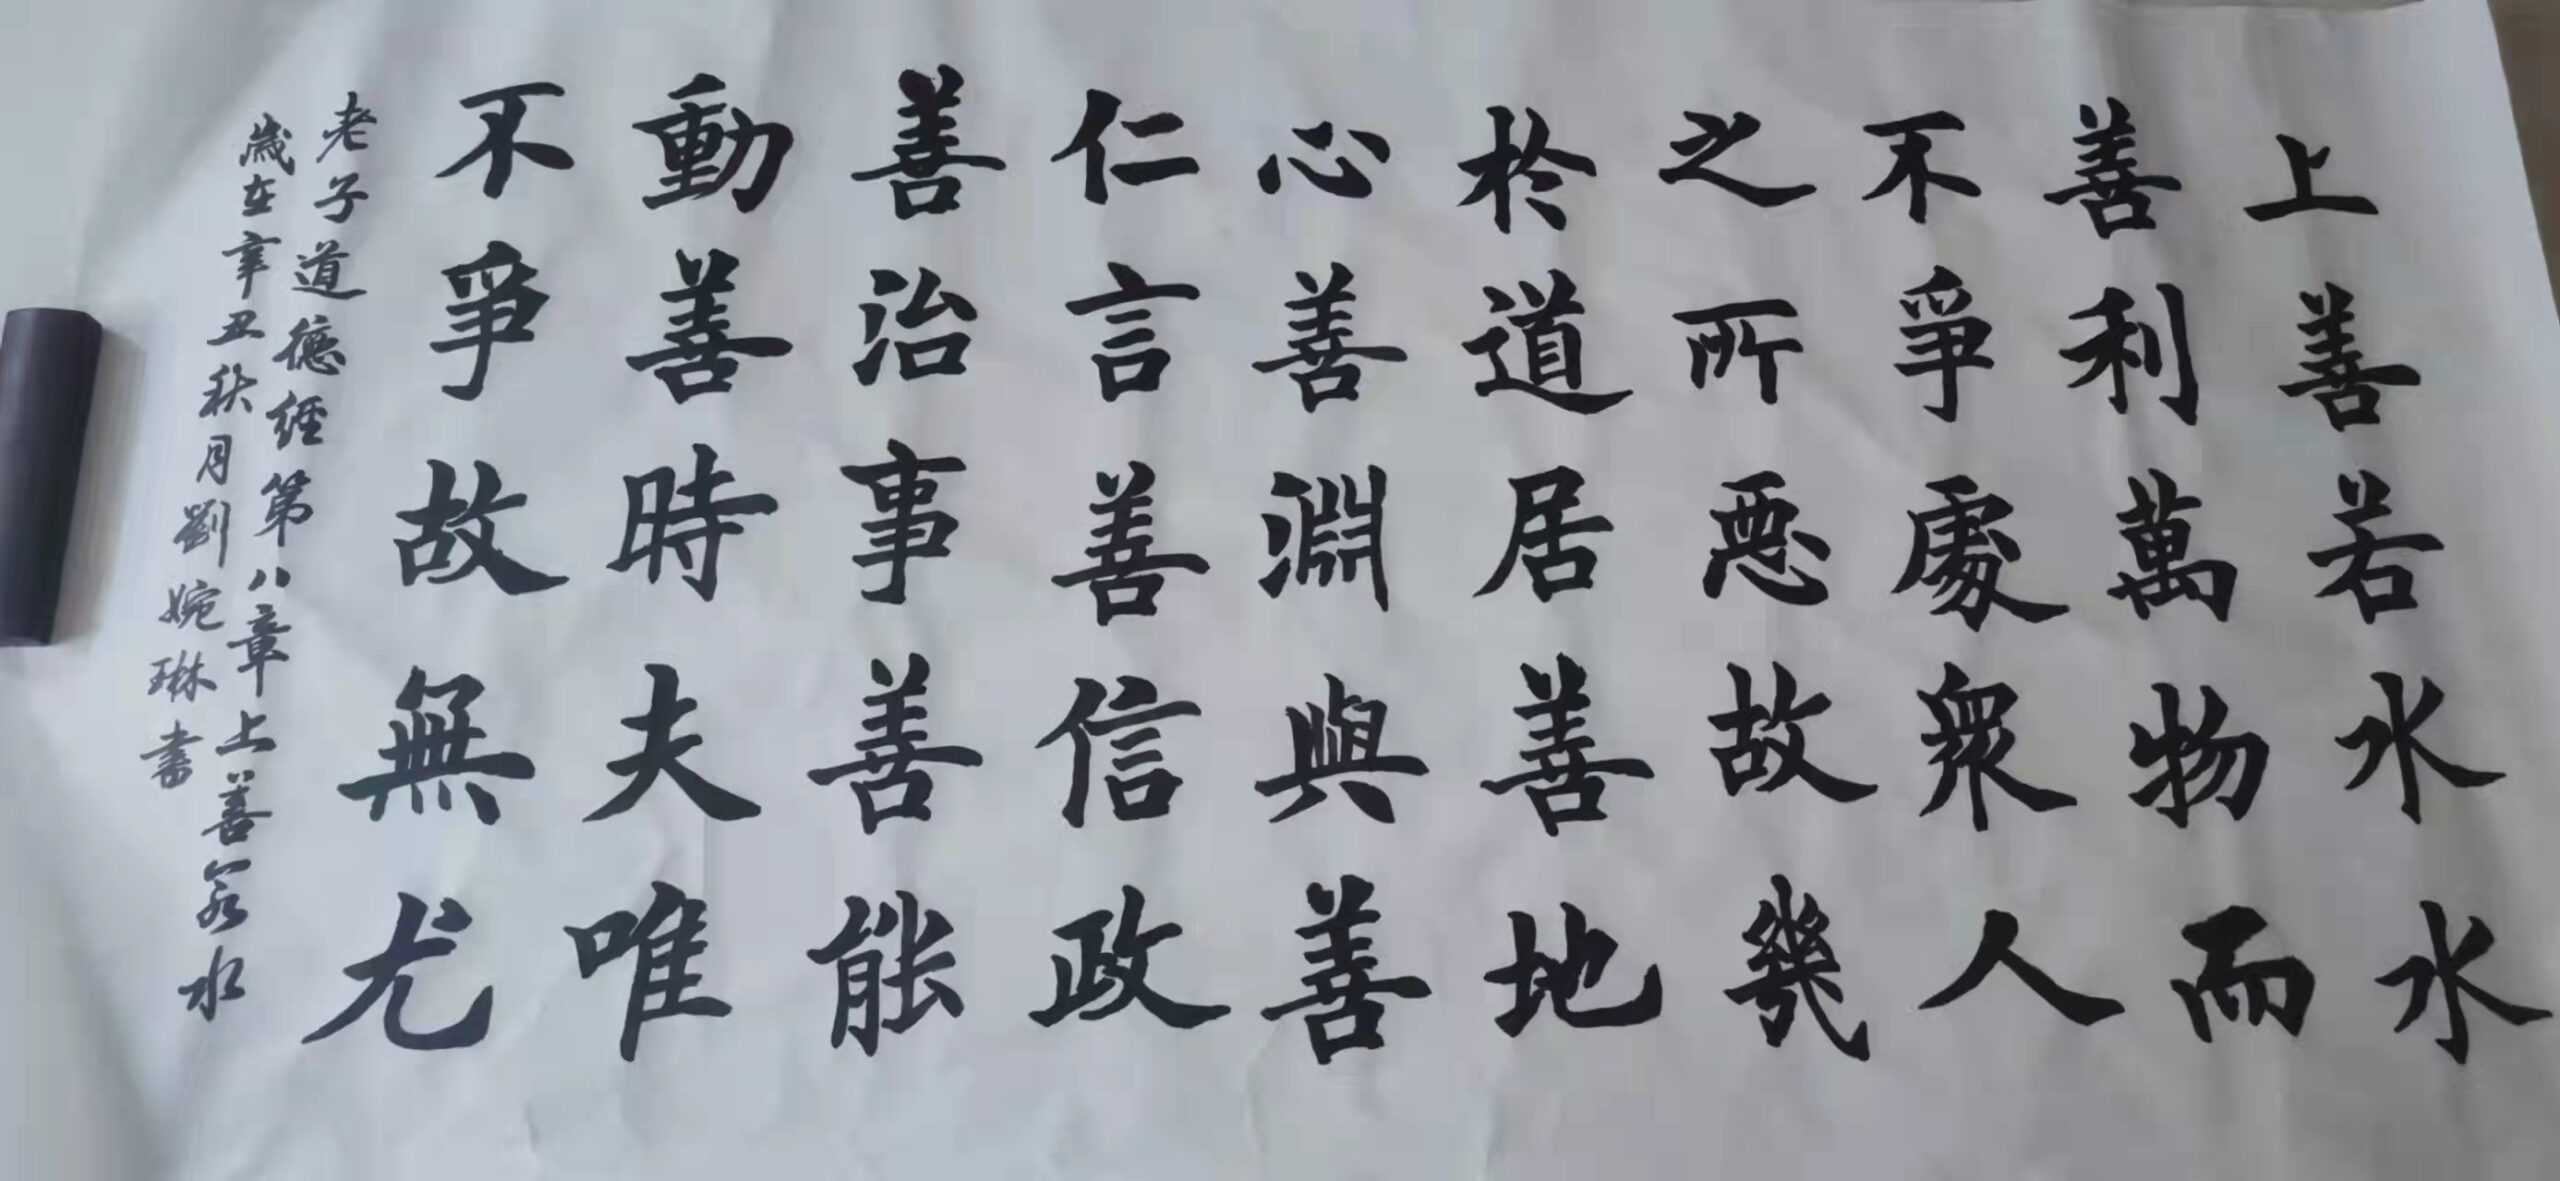 上善若水水
善利萬物而
不爭處衆人
之所惡故幾
於道居善地
心善淵與善
仁言善信政
善治事善能
動善時夫唯
不爭故無尤
老子道德經第八章上善若水
歲在辛丑秋月劉婉琳書